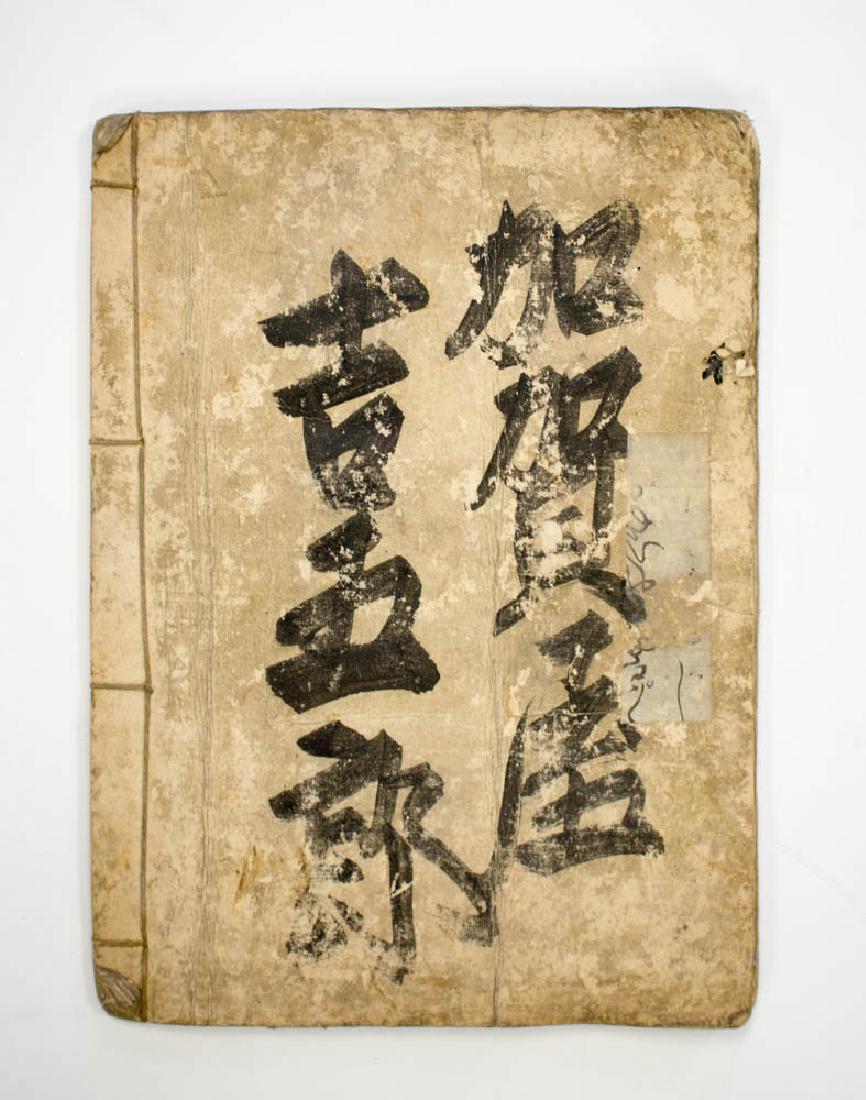 加賀屋
吉五郎